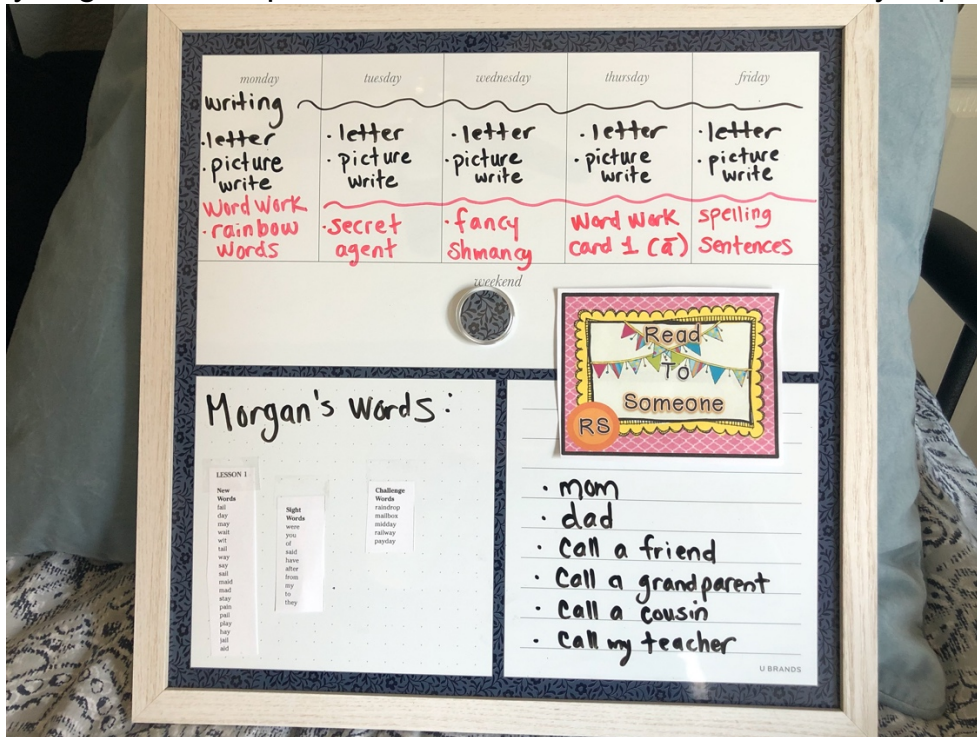 monday
tuesday
wednesday
thursday
friday
writing
· letter
· picture
write
· letter
· picture
write
· letter
· picture
write
· letter
· picture
write
· letter
· picture
write
Word Work
· rainbow
words
· secret
agent
· fancy
shmancy
Word Work
card 1 (ā)
spelling
sentences
weekend
Read
To
Someone
RS
Morgan's Words:
LESSON 1
New
Words
fail
day
may
wait
wit
tail
way
say
sail
maid
mad
stay
pain
pail
play
hay
jail
aid
Sight
Words
were
you
of
said
have
after
from
my
to
they
Challenge
Words
raindrop
mailbox
midday
railway
payday
· mom
· dad
· Call a friend
· Call a grandparent
· Call a cousin
· Call my teacher
U BRANDS